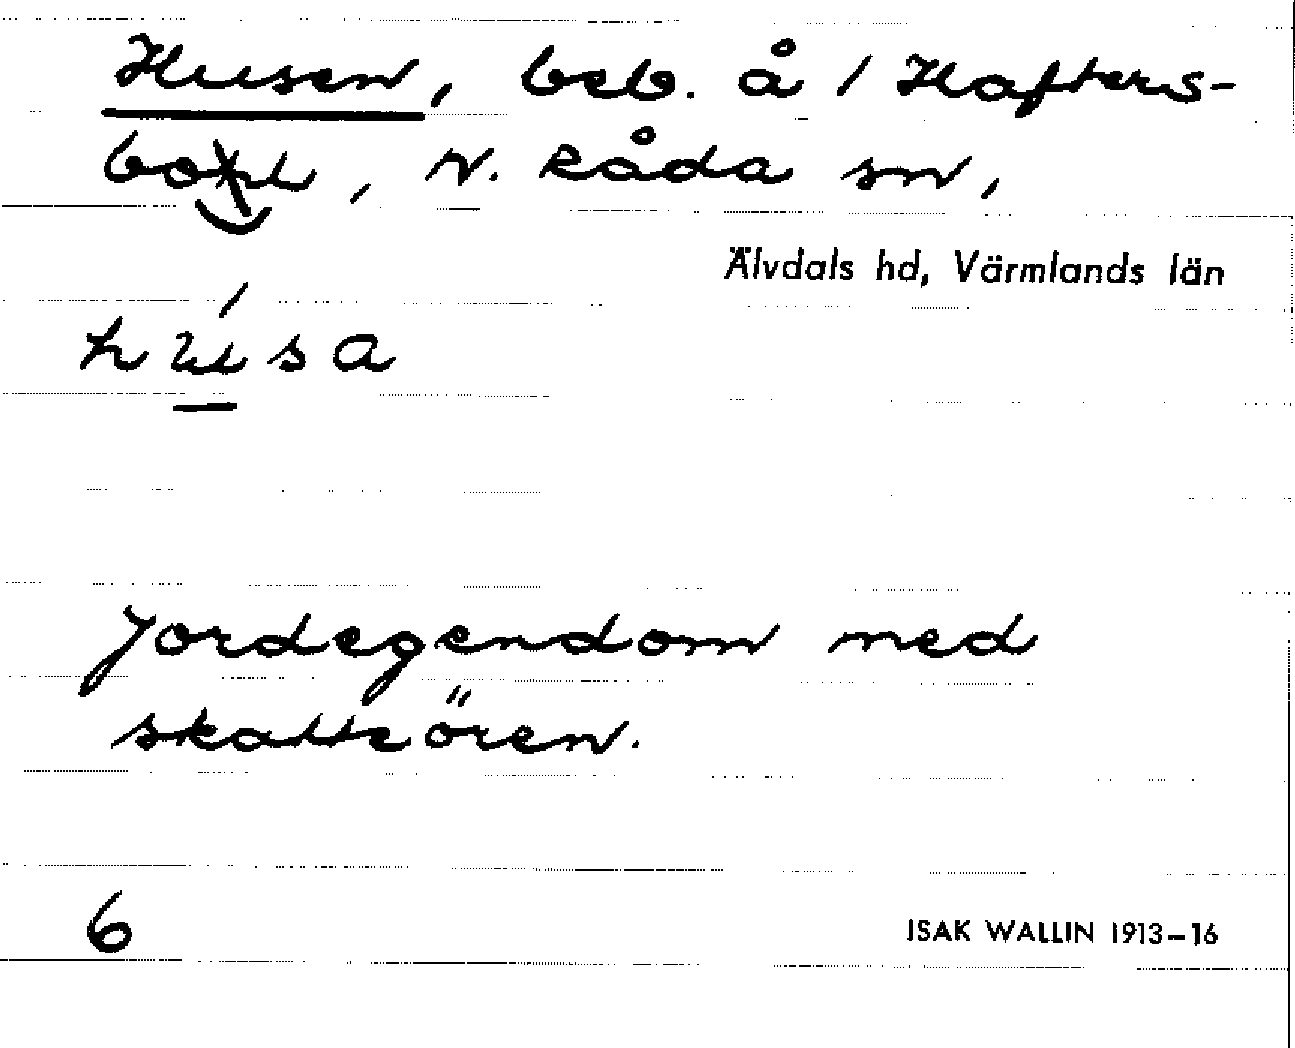 Husen, beb. å 1 Hafters-
bol, N. Råda sn,
Älvdals hd, Värmlands län
húsa
Jordegendom med
skatteören.
6
ISAK WALLIN 1913–16